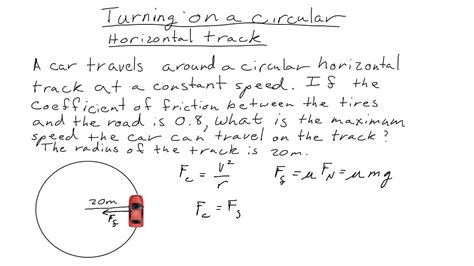 Turning on a circular
Horizontal track
A car travels around a circular horizontal
track at a constant speed. If the
coefficient of friction between the tires
and the road is 0.8, what is the maximum
speed the car can travel on the track?
The radius of the track is 20m.
F_c = v²/r    F_f = μ F_N = μ m g
20m
F_f
F_c = F_f